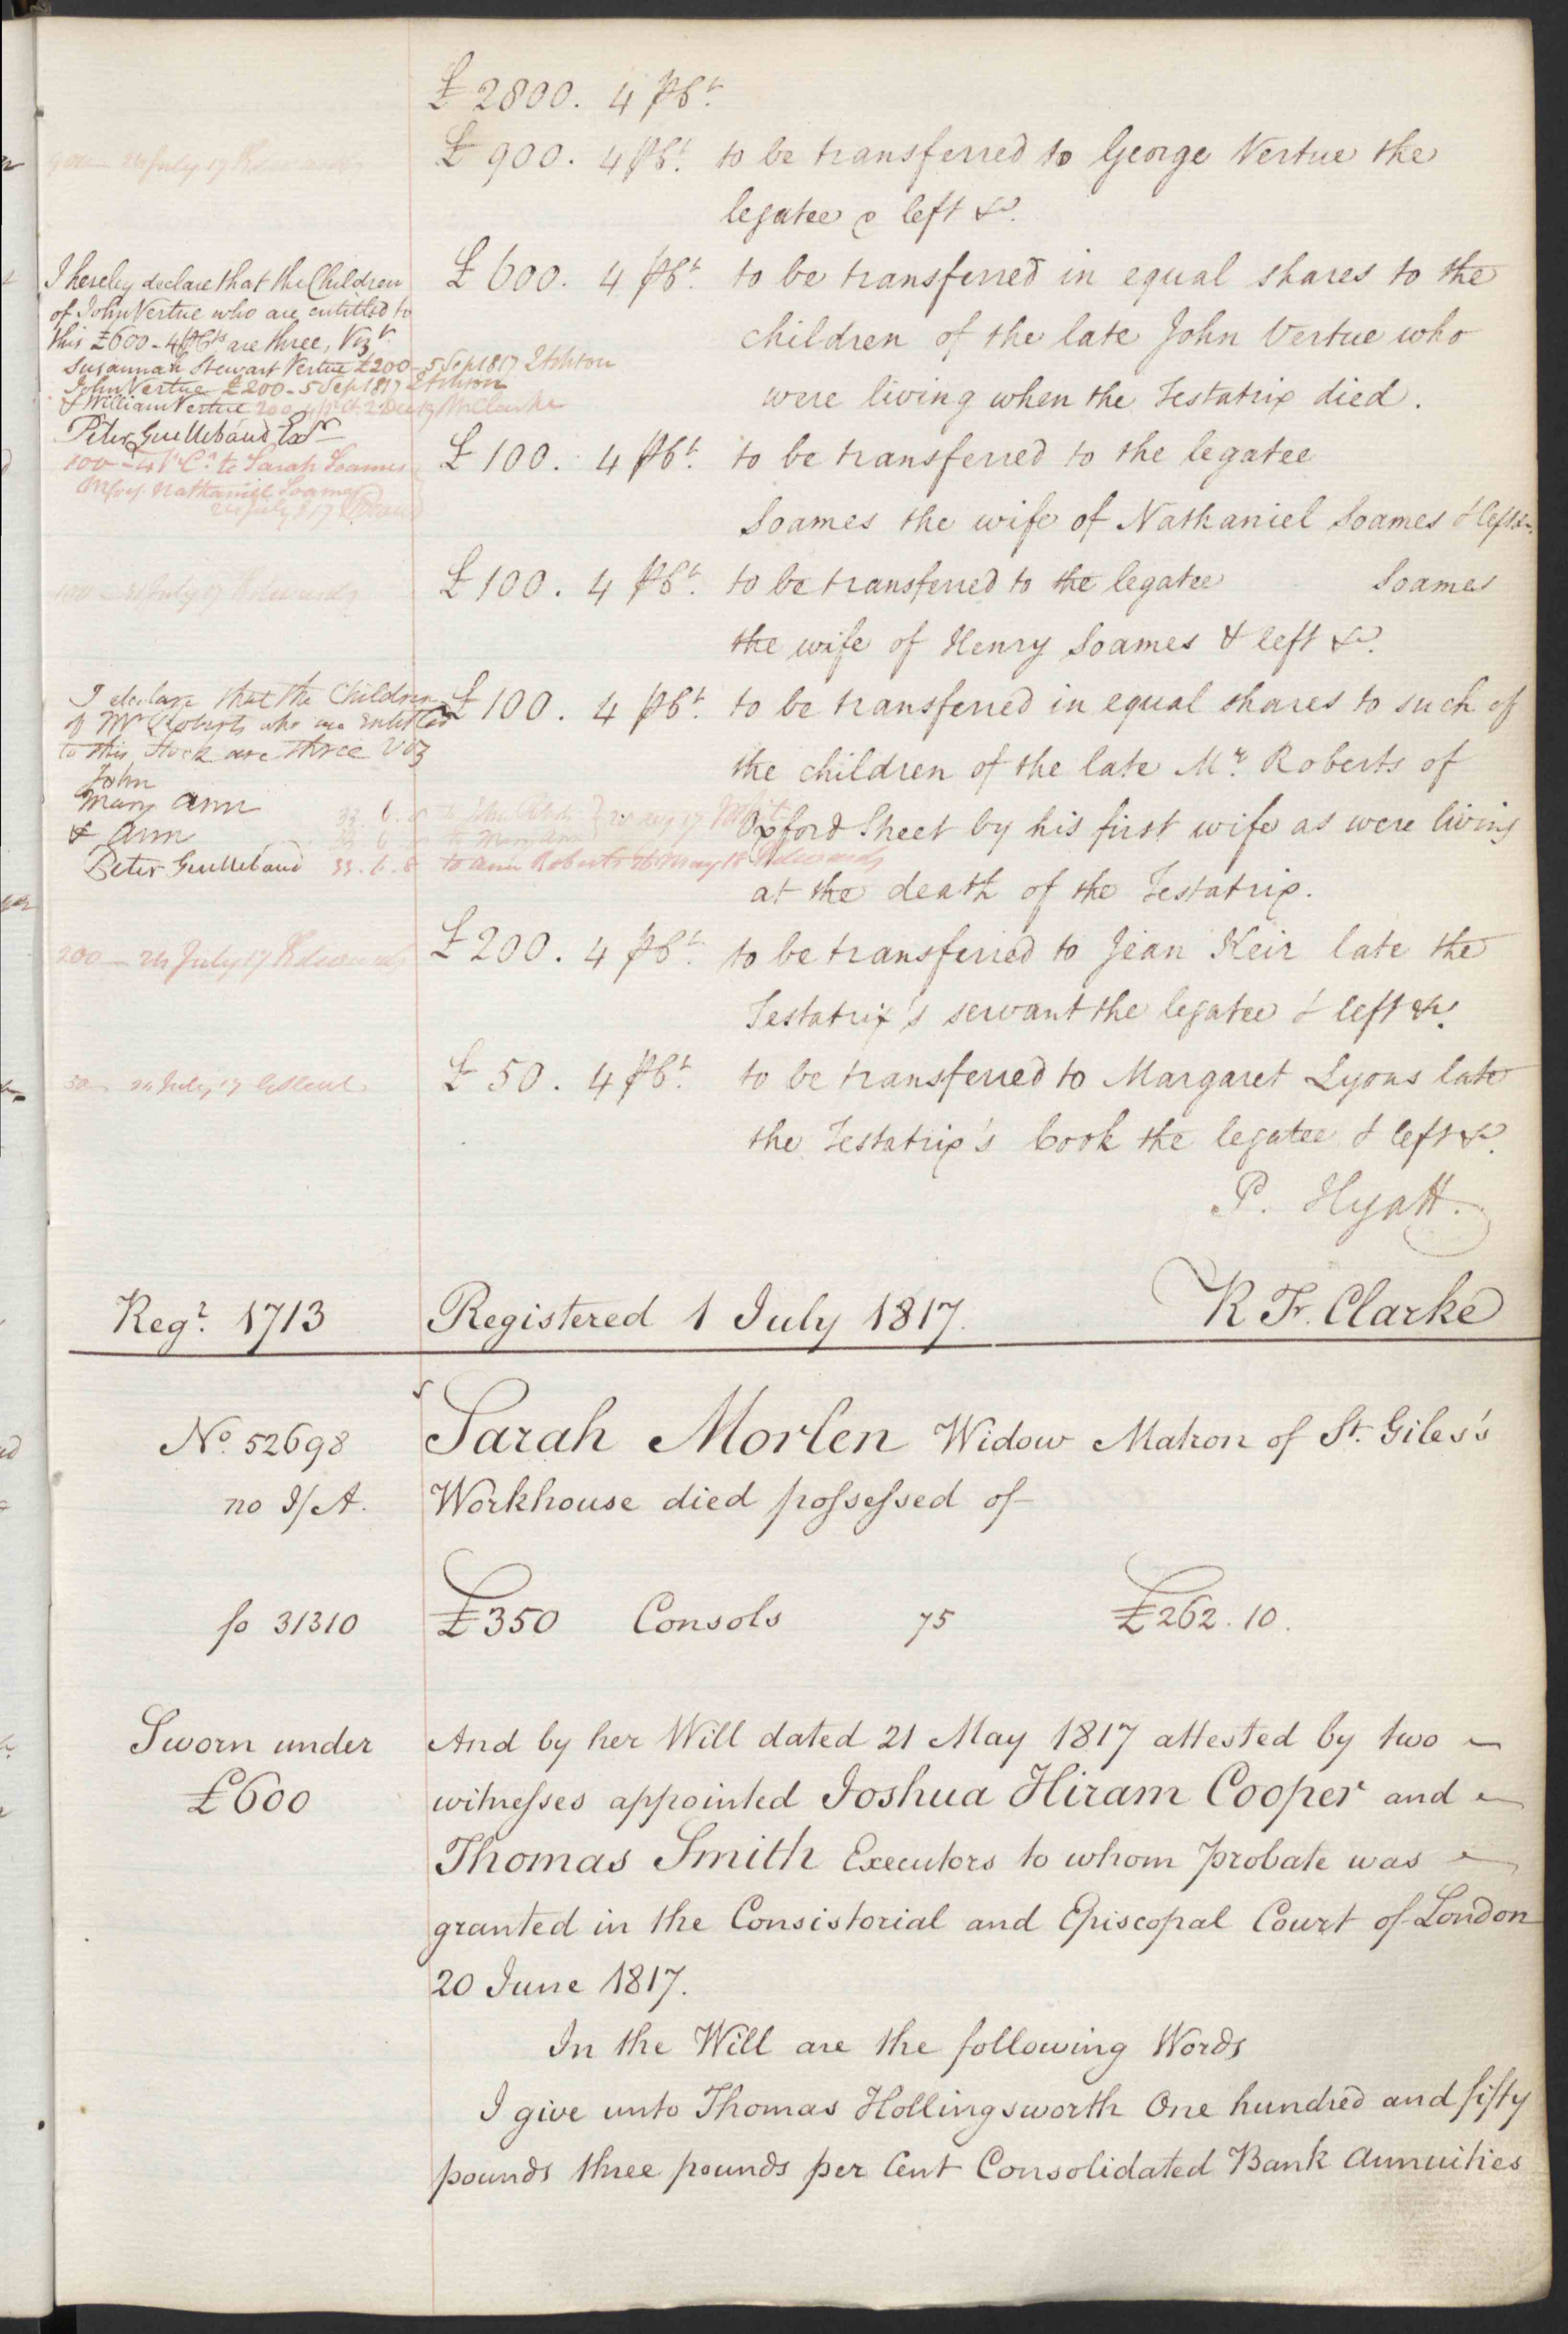 £2800. 4 PCt.
£900. 4 PCt. to be transferred to George Vertue the
legatee & left &c.
£600. 4 PCt. to be transferred in equal shares to the
children of the late John Vertue who
were living when the Testatrix died.
I hereby declare that the Children
of John Vertue who are entitled to
this £600-4PCts are three, Vizt.
Susannah Stewart Vertue £200-5 Sep 1817
John Vertue £200-5 Sep 1817
& William Vertue 200
Peter Guillebaud Exr
£100. 4 PCt. to be transferred to the legatee
Soames the wife of Nathaniel Soames & left &c.
100-4 PCt. to Sarah Soames
Nathaniel Soames
24 July 1817
£100. 4 PCt. to be transferred to the legatee Soames
the wife of Henry Soames & left &c.
100 - 24 July 17 Edwards
£100. 4 PCt. to be transferred in equal shares to such of
the children of the late Mr. Roberts of
Oxford Street by his first wife as were living
at the death of the Testatrix.
I declare that the Children
of Mr Roberts who are entitled
to this Stock are three Viz
John
Mary Ann
& Ann 33.6.8 to Ann Roberts May 18 Edwards
Peter Guillebaud
£200. 4 PCt. to be transferred to Jean Keir late the
Testatrix's servant the legatee & left &c.
200 - 24 July 17 Edwards
£50. 4 PCt. to be transferred to Margaret Lyons late
the Testatrix's Cook the legatee & left &c.
50 24 July 17
P. Hyatt.
Regr. 1713 Registered 1 July 1817. R Fr. Clarke
No. 52698 Sarah Morlen Widow Matron of St. Giles's
no I/A. Workhouse died possessed of
fo 31310 £350 Consols 75 £262.10.
Sworn under And by her Will dated 21 May 1817 attested by two
£600 witnesses appointed Joshua Hiram Cooper and
Thomas Smith Executors to whom probate was
granted in the Consistorial and Episcopal Court of London
20 June 1817.
In the Will are the following Words
I give unto Thomas Hollingsworth One hundred and fifty
pounds three pounds per Cent Consolidated Bank Annuities